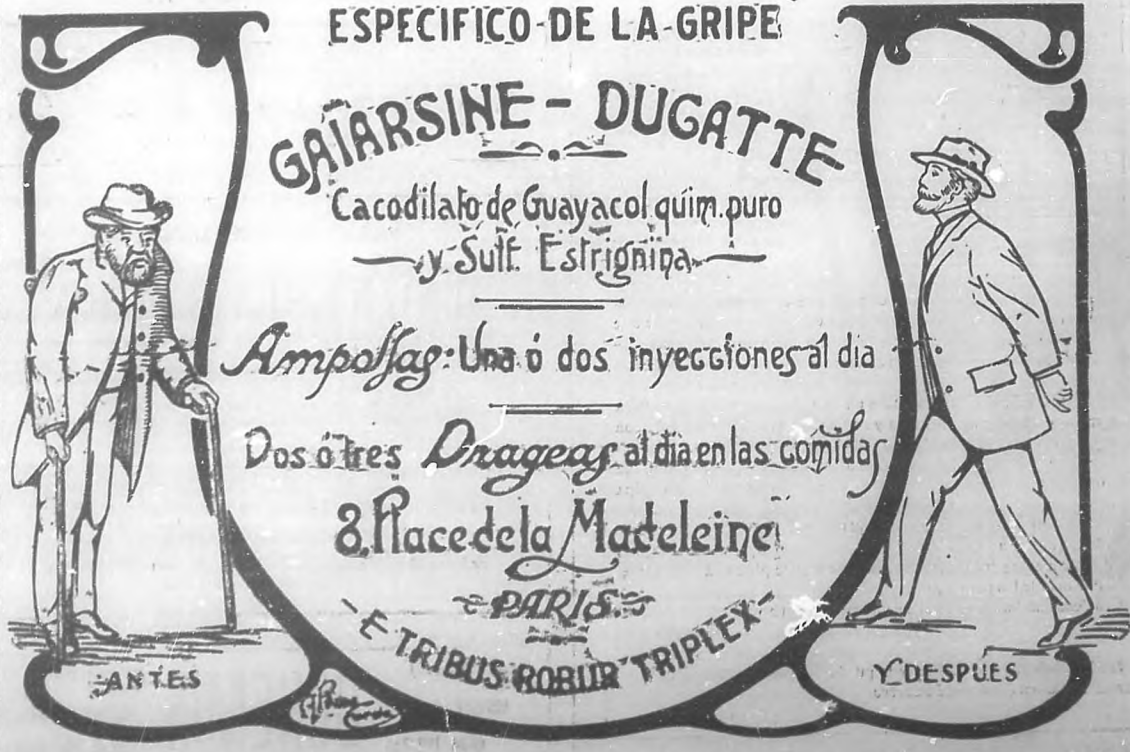 ESPECIFICO-DE LA-GRIPE
GAÏARSINE - DUGATTE
Cacodilato de Guayacol quim. puro
y Sulf. Estrignina
Ampollas: Una ó dos inyecciones al dia
Dos ó tres Drageas al dia en las comidas
8, Place de la Madeleine
PARIS
E TRIBUS ROBUR TRIPLEX
ANTES
Y DESPUES